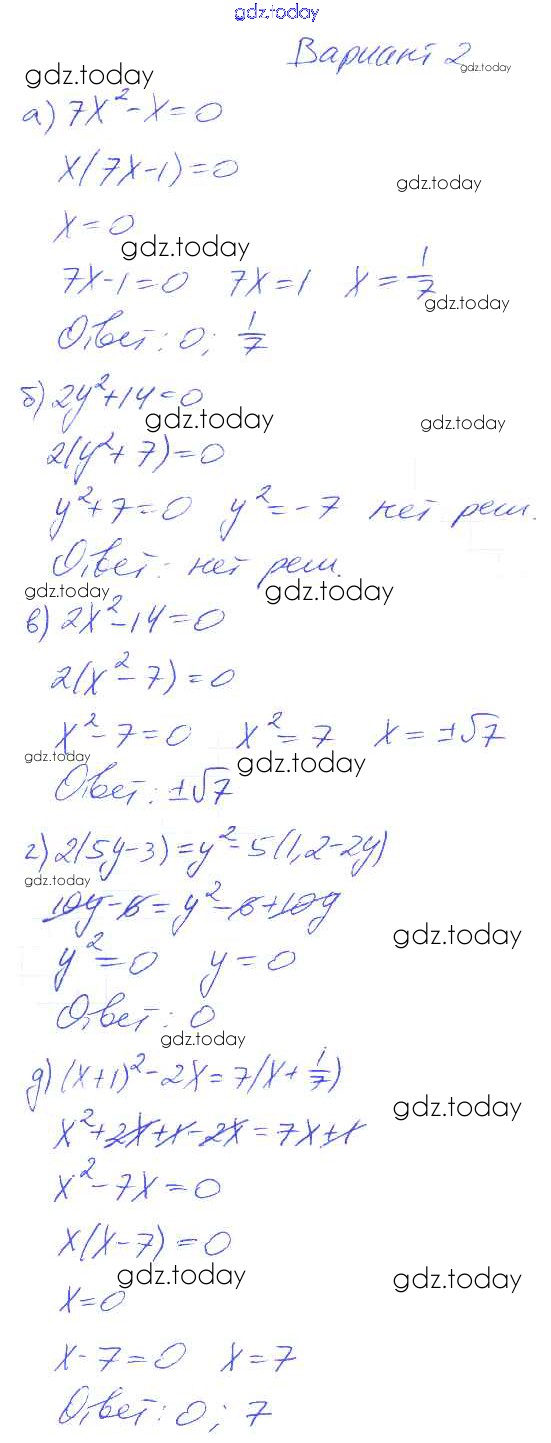 gdz.today
Вариант 2
gdz.today gdz.today
а) 7x² - x = 0
x(7x-1) = 0
gdz.today
x = 0
gdz.today
7x-1=0 7x=1 x = 1/7
gdz.today
Ответ: 0; 1/7
б) 2y²+14=0
gdz.today gdz.today
2(y²+7)=0
y²+7=0 y²=-7 нет реш.
Ответ: нет реш.
gdz.today gdz.today
в) 2x²-14=0
2(x²-7)=0
x²-7=0 x²=7 x=±√7
gdz.today gdz.today
Ответ: ±√7
г) 2(5y-3)=y²-5(1,2-2y)
gdz.today
10y-6=y²-6+10y
gdz.today
y²=0 y=0
Ответ: 0
gdz.today
д) (x+1)²-2x=7(x+1/7)
gdz.today
x²+2x+1-2x=7x+1
x²-7x=0
x(x-7)=0
gdz.today gdz.today
x=0
x-7=0 x=7
Ответ: 0; 7